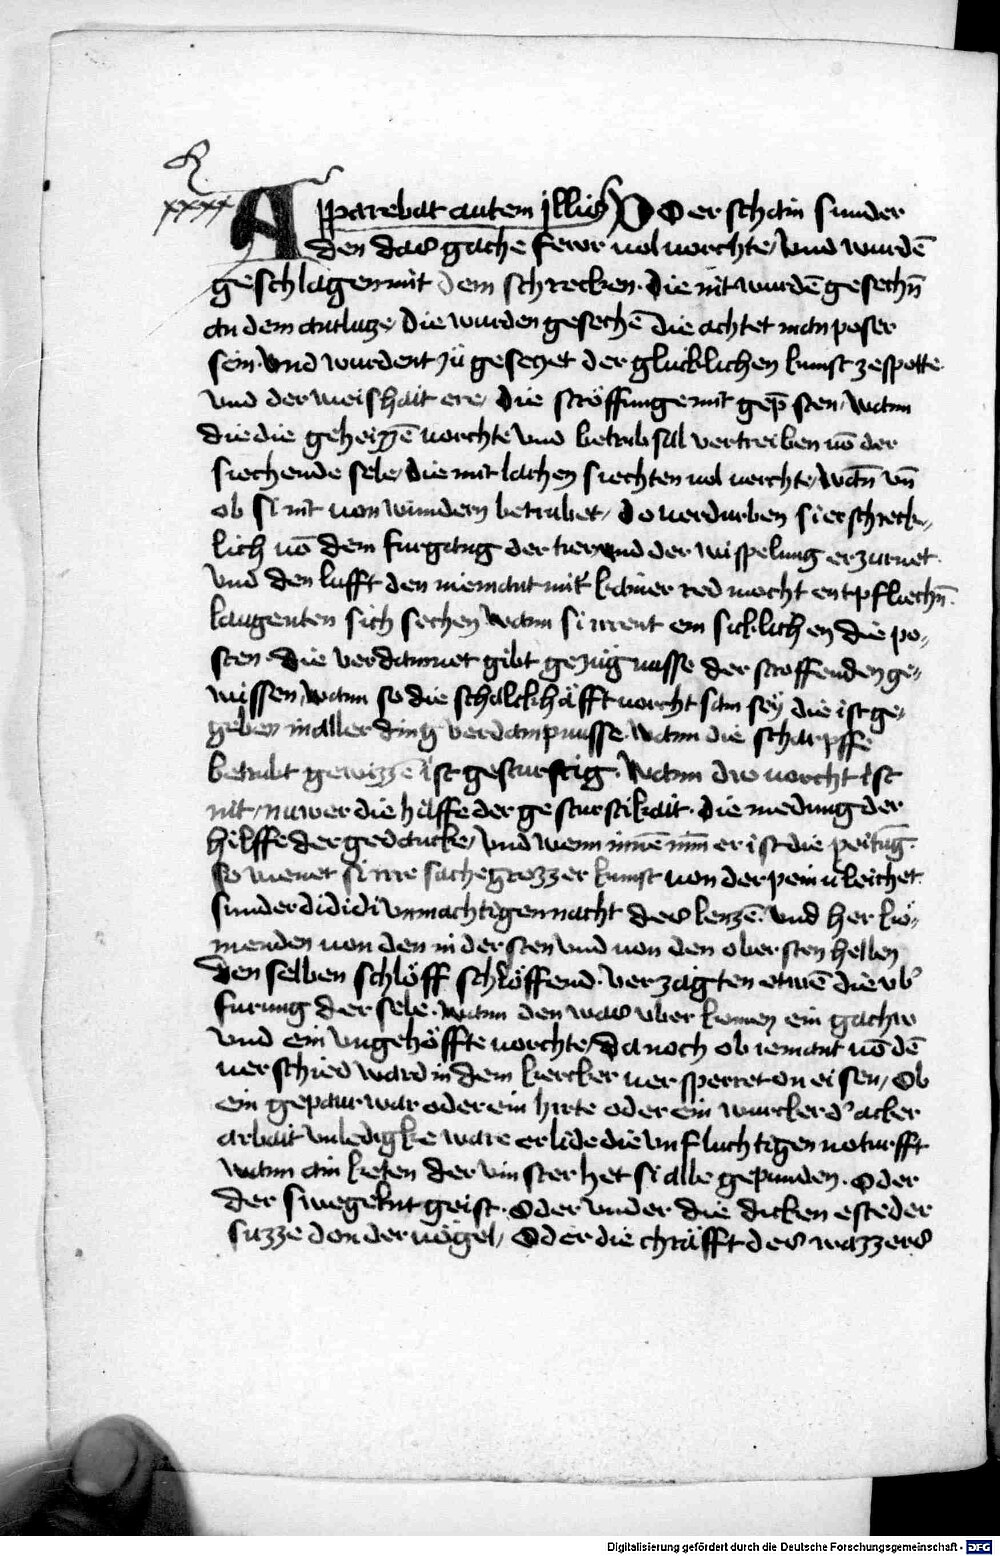 R
xxxx
Apparebat autem jllis Do erschain sunder
den das gache fewr uol uorchte / vnd wurdē
geschlagen mit dem schrecken. Die nit wurdē gesechn̄
an dem antlutze / Die wurden gesechē die achtet man poser
sein. Vnd wurdent zů geseczet der glücklichen kunst ze spotte
vnd der weishait ere / Die ströffunge mit gep̄ sten / wann
die die geheizzē uorchte vnd betrubsal vertreiben uō der
siechende sele / die mit lachen siechten uol uorchte / wān̄ vn̄
ob si nit uon wundern betrubet / do uerdurben si erschreck-
lich uō dem furgang der tier vnd der wispelung erzurnet.
vnd den lufft den niemant mit kainer red mocht entpfliechn̄.
laugenten sich sechen wann si irrent ein sicklichen die po-
sten. die verdamnet gibt gezügnusse der stroffenden ge-
wissen / wann so die schalckhäfft uorcht sam sey die ist ge-
geben in aller ding verdampnusse. wann die scharpffe
betrubt gewizzē ist gesturstig. Wann die uorcht ist
nit / nuwer die hilffe der gesturstikait. die meldung der
hilffe der gedancke / vnd wenn innē mīn er ist die peitūg.
so wenet si irre sache grozzer kunst uon der pein u leichet.
sunder di di di vnmachtigen nacht des lenzē. vnd her kö-
menden uon den nidersten vnd uon den obersten hellen
den selben schlöff schlöffend. verzagten etwē die vb'
furung der sele. wann den was vber komen ein gachw
vnd ein vngehöffte uorchte / da noch ob iemant uō dē
uerschied ward in dem kercker uersperret on eisen / Ob
ein gepaur war oder ein hirte oder ein wurcker d' acker
arbait vnledigke ware er lide die vnfluchtigen noturfft
wann ain keten der vinster het si alle gepunden. Oder
der siwegelnt geist. Oder vnder die dicken este der
suzze don der uögel / Oder die chräfft des wazzers
Digitalisierung gefördert durch die Deutsche Forschungsgemeinschaft - DFG